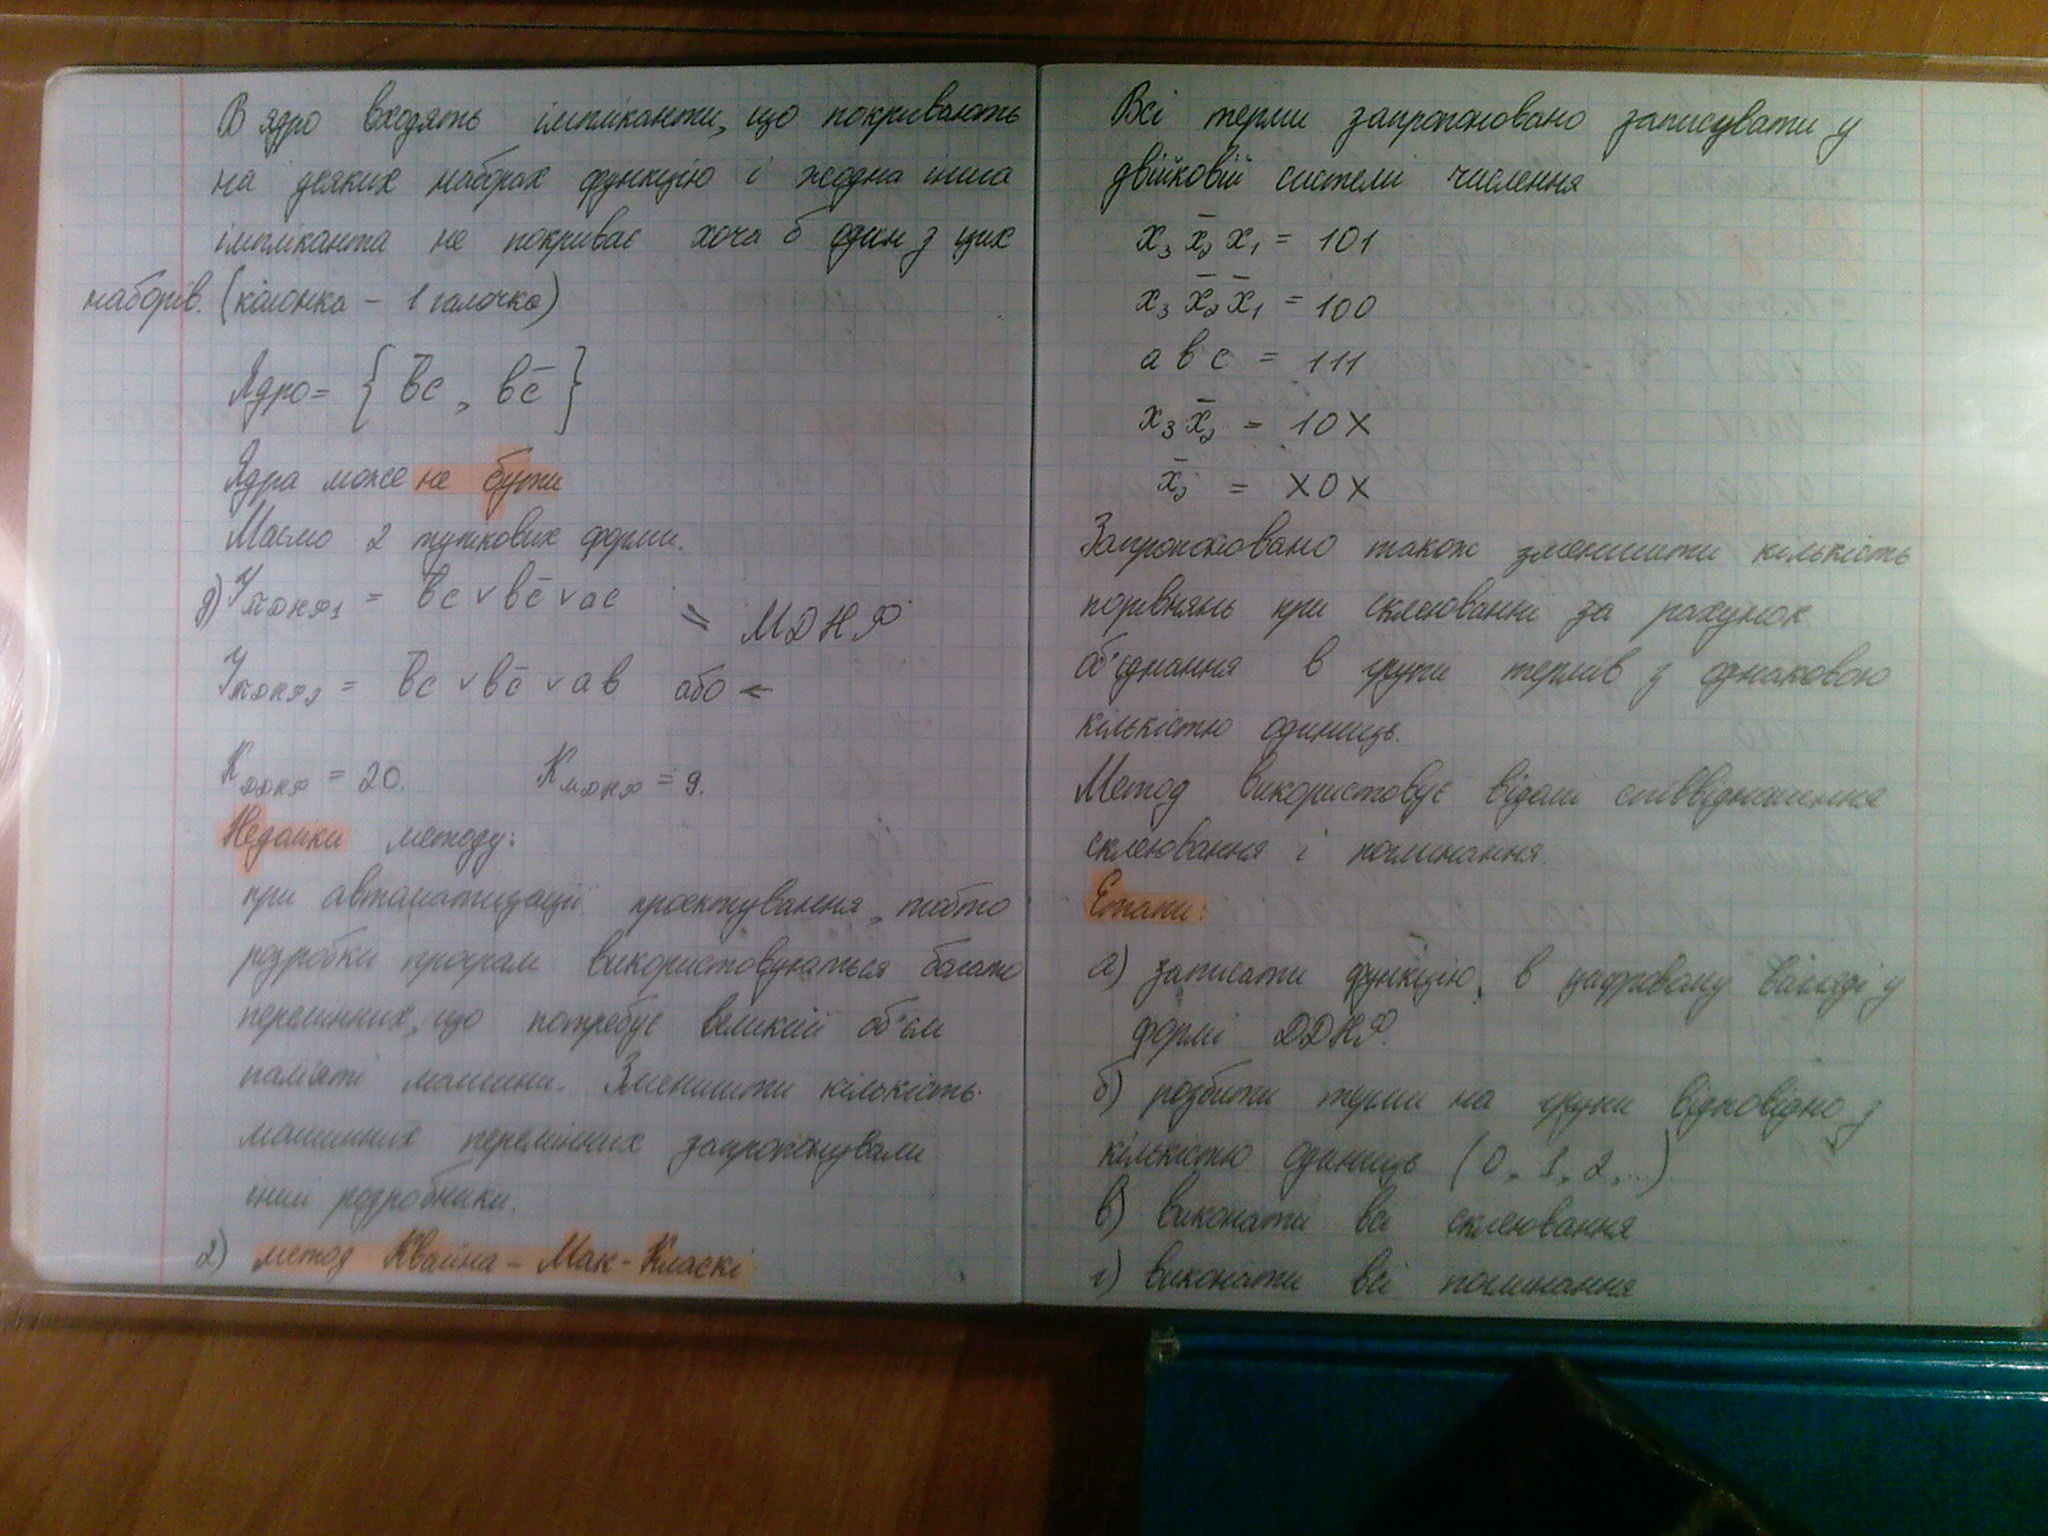 В ядро входять імпліканти, що покривають
на деяких наборах функцію і жодна інша
імпліканта не покриває хоча б один з цих
наборів. (колонка – 1 галочка)
Ядро = { b̄c, bc̄ }
Ядра може не бути
Маємо 2 тупикових форми.
д) YТДНФ1 = b̄c ∨ bc̄ ∨ ac = МДНФ
YТДНФ2 = b̄c ∨ bc̄ ∨ ab або
KДДНФ = 20. KМДНФ = 9.
Недоліки методу:
при автоматизації проектування, тобто
розробки програм використовуються багато
перемінних, що потребує великий об'єм
пам'яті машини. Зменшити кількість
машинних перемінних запропонували
інші розробники.
2) метод Квайна – Мак-Класкі
Всі терми запропоновано записувати у
двійковій системі числення
x₃ x̄₂ x₁ = 101
x₃ x̄₂ x̄₁ = 100
a b c = 111
x₃ x̄₂ = 10X
x̄₂ = X0X
Запропоновано також зменшити кількість
порівнянь при склеюванні за рахунок
об'єднання в групи термів з однаковою
кількістю одиниць.
Метод використовує відомі співвідношення
склеювання і поглинання.
Етапи:
а) записати функцію в цифровому вигляді у
формі ДДНФ.
б) розбити терми на групи відповідно з
кількістю одиниць (0, 1, 2, ...)
в) виконати всі склеювання
г) виконати всі поглинання